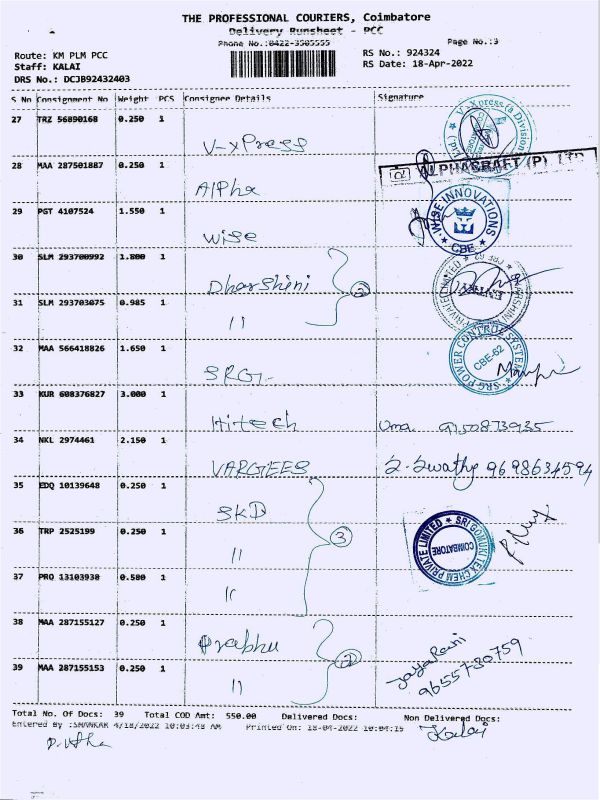 THE PROFESSIONAL COURIERS, Coimbatore
Delivery Runsheet - PCC
Phone No.:0422-3505555
Page No.:3
Route: KM PLM PCC
RS No.: 924324
Staff: KALAI
RS Date: 18-Apr-2022
DRS No.: DCJB92432403
S No Consignment No Weight PCS Consignee Details Signature
27 TRZ 56890168 0.250 1
V-XPress
28 MAA 287501887 0.250 1
Alpha
ALPHACRAFT (P) LTD
29 PGT 4107524 1.550 1
Wise
WISE INNOVATIONS
CBE
30 SLM 293700992 1.800 1
Dharshini
2
31 SLM 293703075 0.985 1
11
32 MAA 566418826 1.650 1
SRG
SRG POWER CONTROL SYSTEM
CBE-62
33 KUR 608376827 3.000 1
Hitech Uma.
34 NKL 2974461 2.150 1
VARGEES S. Swathy 9698634594
35 EDQ 10139648 0.250 1
SKD
36 TRP 2525199 0.250 1
11
3
PRIVATE LIMITED
COIMBATORE
37 PRO 13103938 0.580 1
11
38 MAA 287155127 0.250 1
Prabhu
JayaRani
9655730759
39 MAA 287155153 0.250 1
11
Total No. Of Docs: 39 Total COD Amt: 550.00 Delivered Docs: Non Delivered Docs:
Entered By :SHANKAR 4/18/2022 10:03:48 AM Printed On: 18-04-2022 10:04:15
Kalai